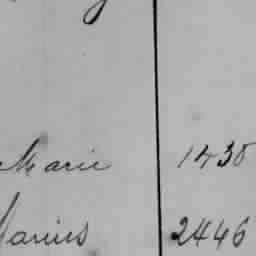 Marie 1438
Marius 2446